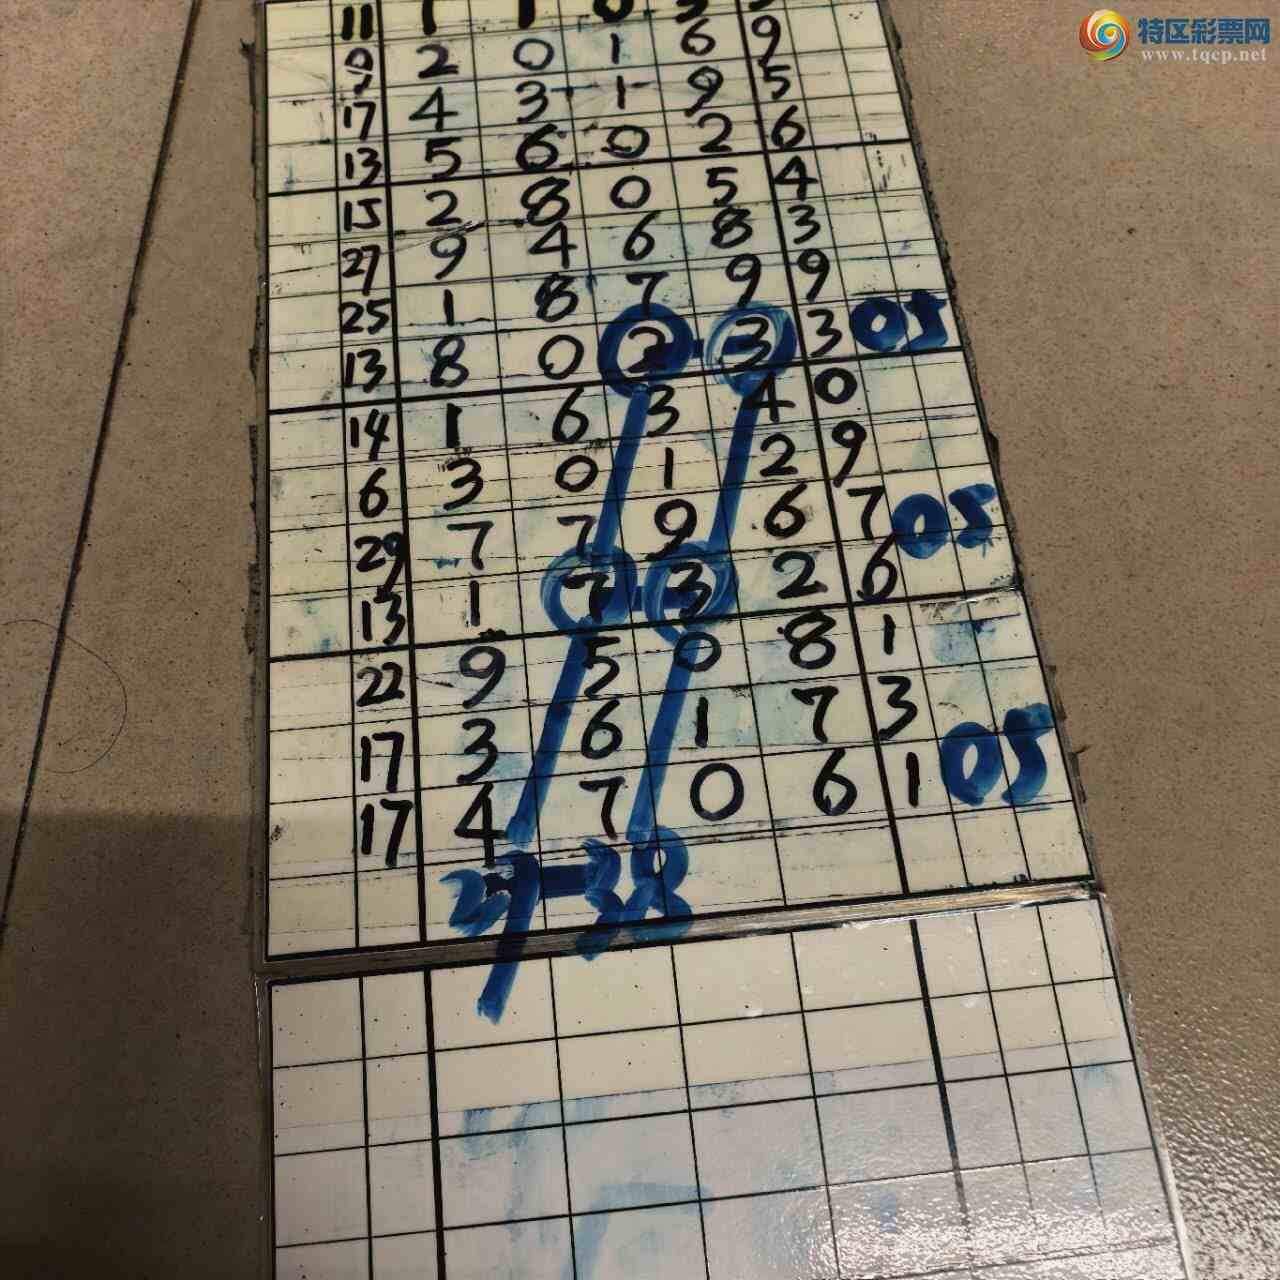 特区彩票网
www.tqcp.net
11 1 1 0
9 2 0 1 6 9
17 4 3 1 9 5
13 5 6 0 2 6
15 2 8 0 5 4
27 9 4 6 8 3
25 1 8 7 9 9
13 8 0 2 - 3 3 05
14 1 6 3 4 0
6 3 0 1 2 9
29 7 7 9 6 7 05
13 1 7 - 3 2 6
22 9 5 0 8 1
17 3 6 1 7 3
17 4 7 0 6 1 05
27-38